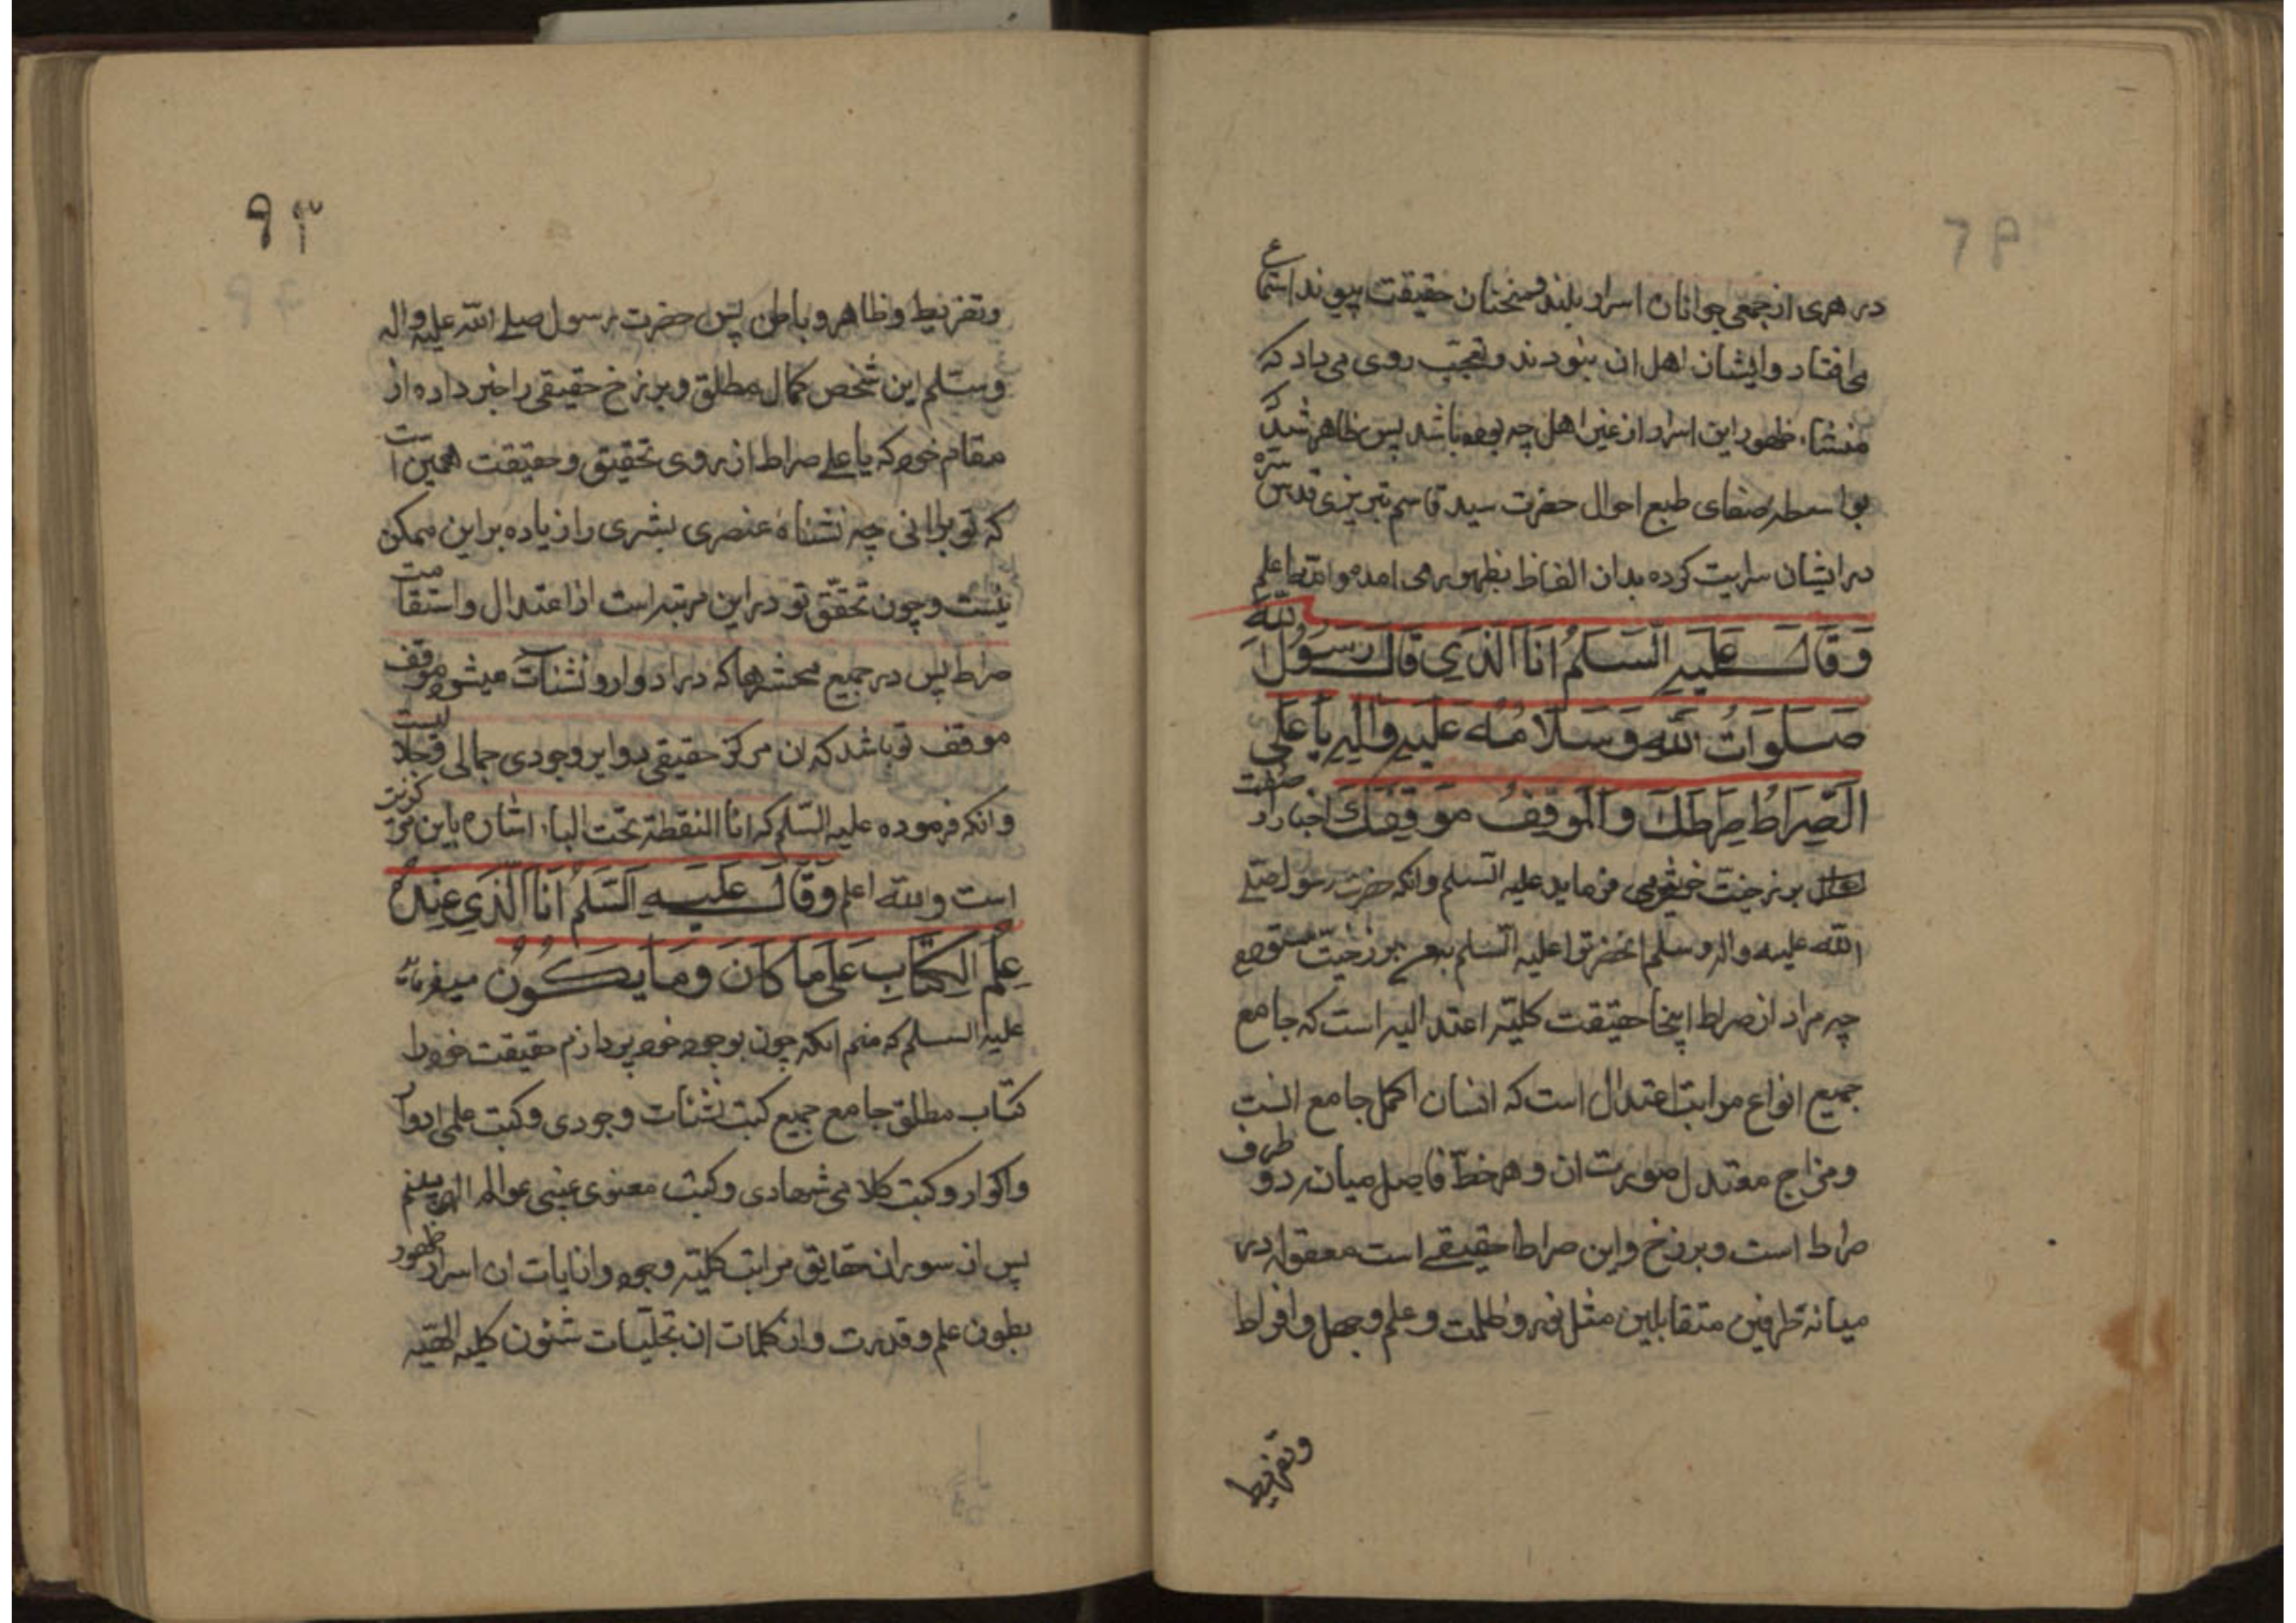 در هری از جمعی جوانان اسرار بلند و سخنان حقیقت پیوند استماع
می افتاد و ایشان اهل ان نبودند و تعجب روی می داد که
منشاء ظهور این اسرار از غیر اهل چه بوده باشد پس ظاهر شد که
بواسطه صفای طبع احوال حضرت سید قاسم تبریزی قدس سره
در ایشان سرایت کرده بدان الفاظ بظهور می امده و الله اعلم
وَقَالَ عَلَيهِ السَّلَمُ اَنَا الَّذِي قَالَ رَسُولُ اللّه
صَلَوَاتُ اللّهِ وَسَلَامُهُ عَلَيهِ وَالِهِ يَا عَلِي
الصِّرَاطُ صِرَاطَكَ وَالمَوقِفُ مَوقِفَكَ اخبار از صفت
برزخیت خود می فرماید علیه السلم وانکه حضرت رسول صلے
الله علیه واله وسلم انحضرترا علیه السلم بدین برزخیت ستوده
چه مراد از صراط اینجا حقیقت کلیه اعتدالیه است که جامع
جمیع انواع مراتب اعتدال است که انسان اکمل جامع انست
ومزاج معتدل صورت ان وهر خط فاصل میان دو طرف
صراط است وبرزخ واین صراط حقیقے است معقوله در
میانه طرفین متقابلین مثل نور وظلمت وعلم وجهل وافراط
وتفریط
۹۳
وتفریط وظاهر وباطن پس حضرت رسول صلے الله علیه واله
وسلم این شخص کمال مطلق وبرزخ حقیقی را خبر داده از
مقام خود که یا علے صراط از روی تحقیق وحقیقت همین است
که تو برانی چه نشناه عنصری بشری را زیاده بر این ممکن
نیست وچون تحقق تو در این مرتبه است از اعتدال واستقامت
صراط پس در جمیع محشرها که در ادوار ونشئات میشود موقف
موقف تو باشد که ان مرکز حقیقی دوایر وجودی جمالی وجلالیست
وانکه فرموده علیه السلم که انا النقطة تحت الباء اشاره باین مرکزیت
است والله اعلم وَقَالَ عَلَيهِ السَّلَمُ اَنَا الَّذِي عِندَهُ
عِلمُ الكِتَابِ عَلَى مَا كَانَ وَمَا يَكُونُ میفرماید
علیه السلم که منم انکه چون بوجود خود پردازم حقیقت خود را
کتاب مطلق جامع جمیع کتب نشئات وجودی وکتب علمی ادوار
واکوار وکتب کلامی شهادی وکتب معنوی غیبی عوالم الهی بینم
پس از سور ان حقایق مراتب کلیه وجود واز ایات ان اسرار ظهور
بطون علم وقدرت واز کلمات ان تجلیات شئون کلیه الهیه